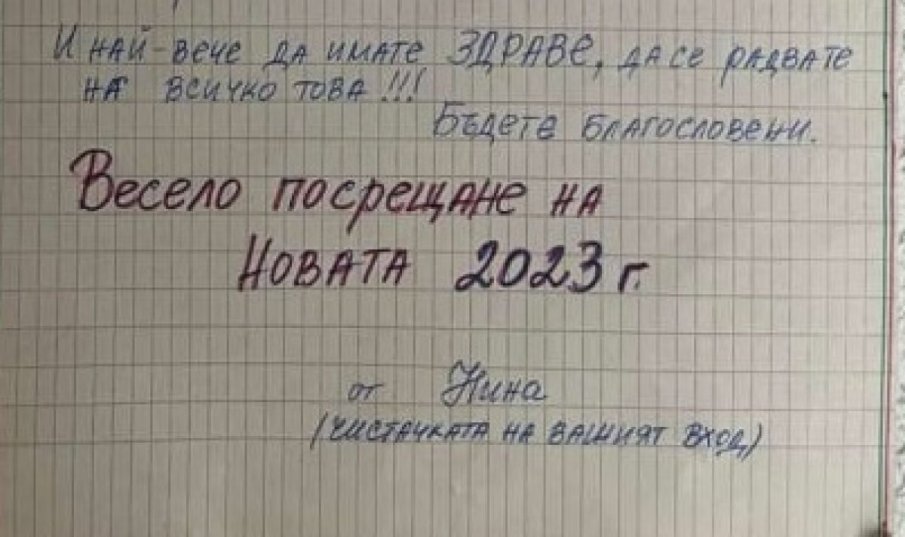 И най-вече да имате ЗДРАВЕ, да се радвате
на всичко това!!!
Бъдете благословени.
Весело посрещане на
Новата 2023 г.
от Нина
(чистачката на вашият вход)